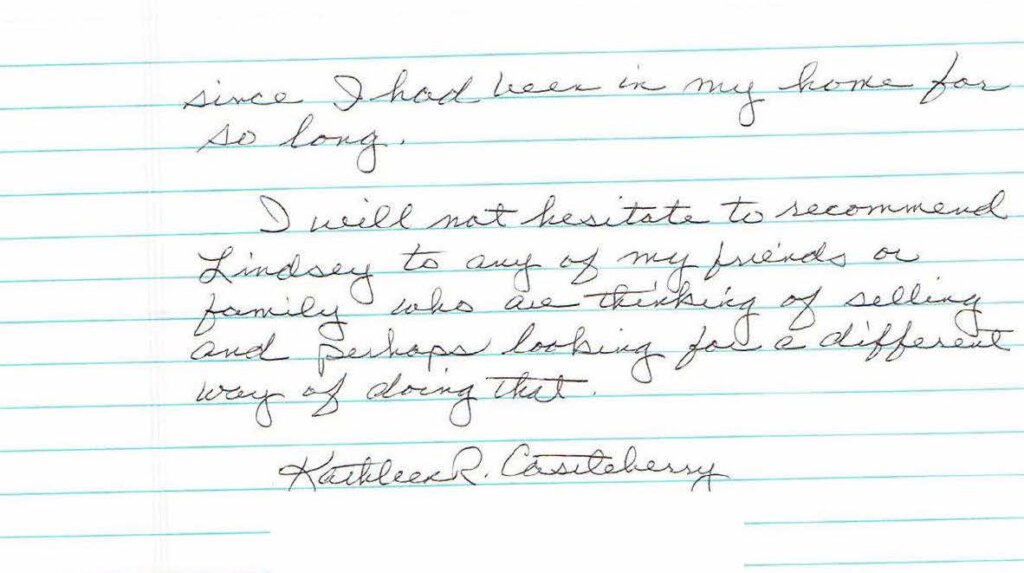 since I had been in my home for
so long.
I will not hesitate to recommend
Lindsey to any of my friends or
family who are thinking of selling
and perhaps looking for a different
way of doing that.
Kathleen R. Castleberry